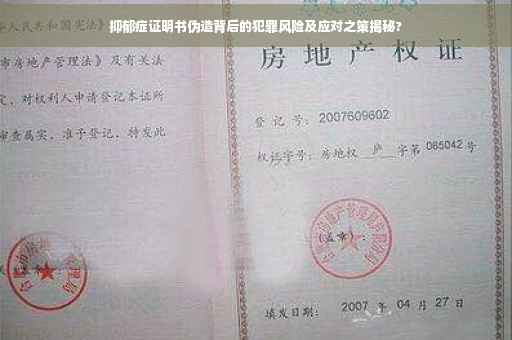 抑郁症证明书伪造背后的犯罪风险及应对之策揭秘?
华人民共和国宪法》
市房地产管理法》及有关法
定,对权利人申请登记本证所
审查属实,准予登记,特发此
房地产权
登记号:2007609602
权证字号:房地权 庐 字第 065042 号
(盖章):
房地产管理局
填发日期: 2007 年 04 月 27 日